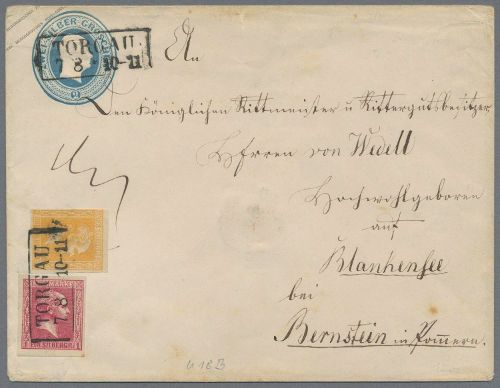 SILBER GRO
TORGAU
7 8 10-11
An
Den Königlichen Rittmeister u Rittergutsbesitzer
Herren von Wedell
Hochwohlgeboren
auf
Blankensee
bei
Bernstein in Pommern.
TORGAU
7 8 10-11
1 SILBERGR. 1